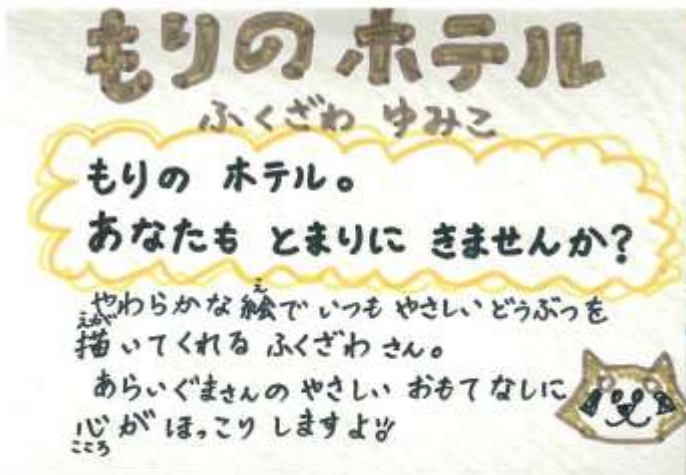 もりのホテル
ふくざわ ゆみこ
もりの ホテル。
あなたも とまりに きませんか?
やわらかな絵でいつも やさしいどうぶつを
描いてくれる ふくざわさん。
あらいぐまさんの やさしい おもてなしに
心が ほっこり しますよ!!